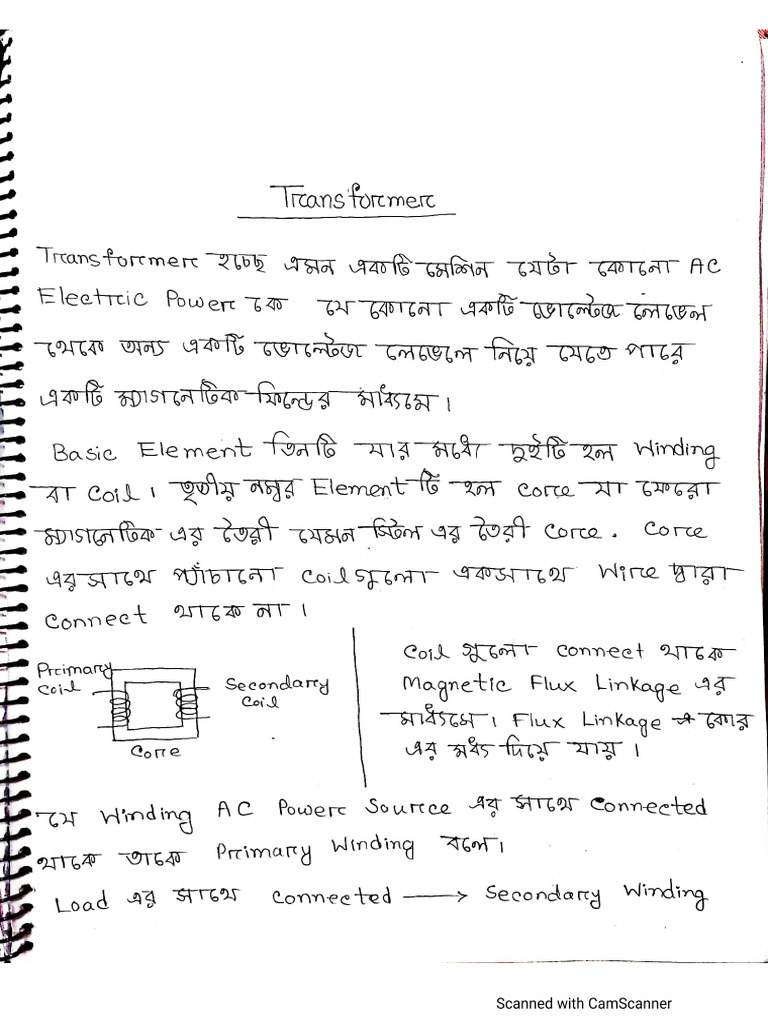 Transformer
Transformer হচ্ছে এমন একটি মেশিন যেটা কোনো AC
Electric Power কে যে কোনো একটি ভোল্টেজ লেভেল
থেকে অন্য একটি ভোল্টেজ লেভেলে নিয়ে যেতে পারে
একটি ম্যাগনেটিক ফিল্ডের মাধ্যমে।
Basic Element তিনটি যার মধ্যে দুইটি হল Winding
বা Coil। তৃতীয় নম্বর Element টি হল Core যা ফেরো
ম্যাগনেটিক এর তৈরী যেমন স্টিল এর তৈরী Core. Core
এর সাথে প্যাঁচানো Coil গুলো একসাথে Wire দ্বারা
Connect থাকে না।
Primary
Coil
Secondary
Coil
Core
Coil গুলো Connect থাকে
Magnetic Flux Linkage এর
মাধ্যমে। Flux Linkage কোর
এর মধ্য দিয়ে যায়।
যে Winding AC Power Source এর সাথে Connected
থাকে তাকে Primary Winding বলে।
Load এর সাথে Connected → Secondary Winding
Scanned with CamScanner